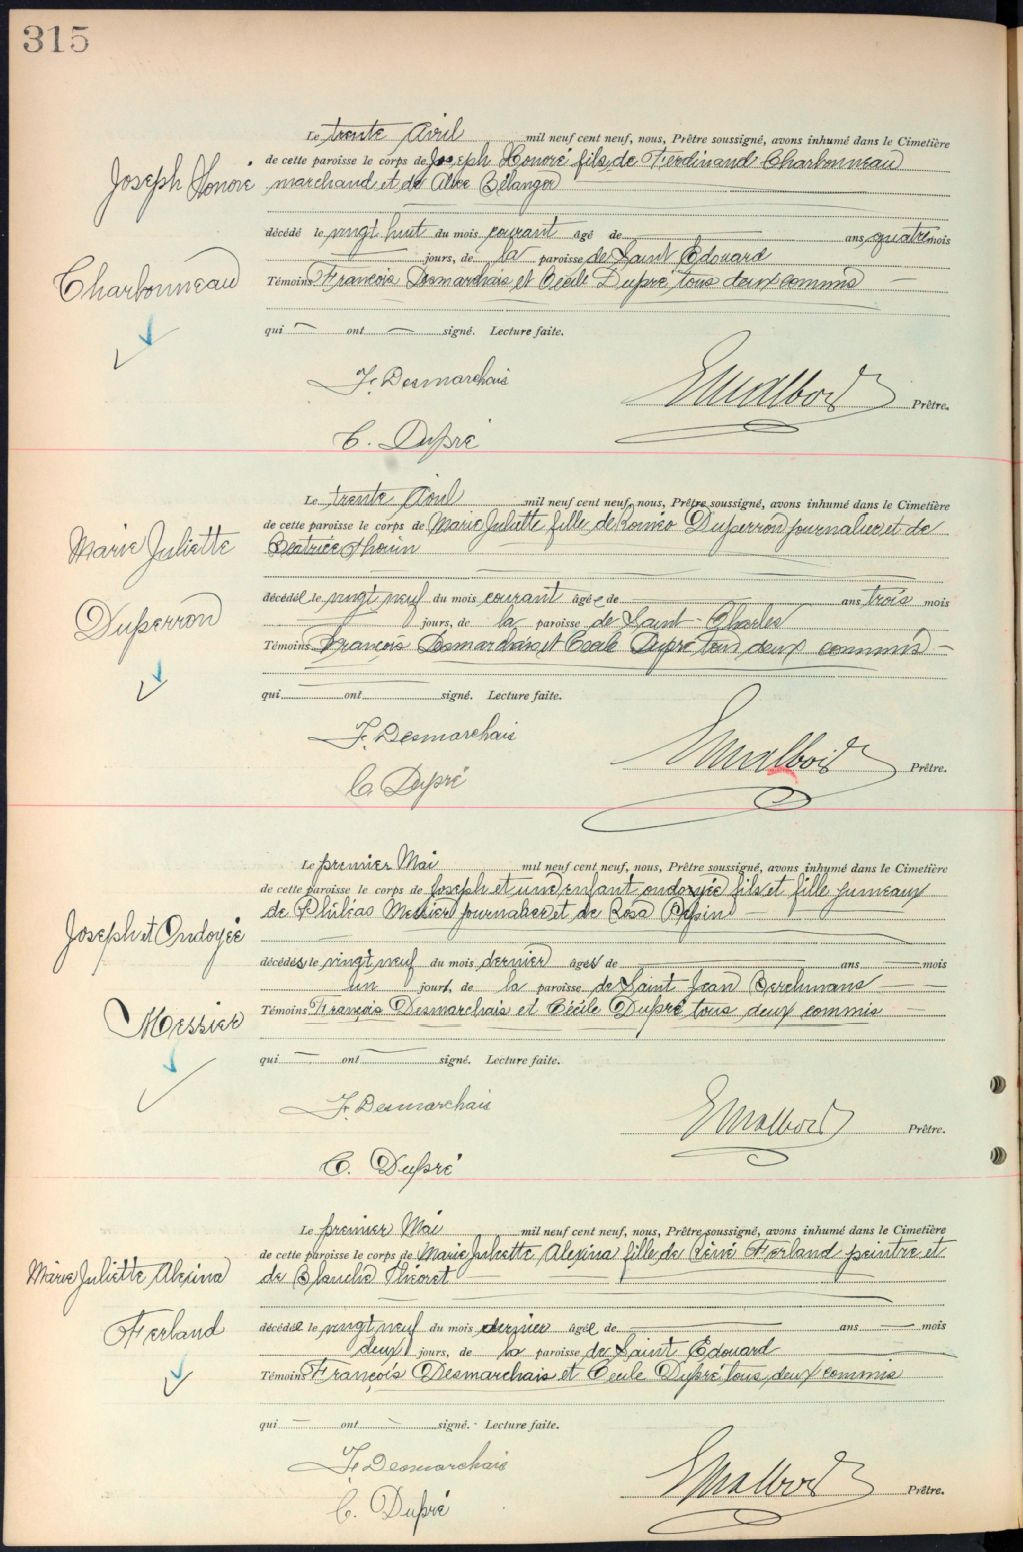 315
Le trente Avril mil neuf cent neuf, nous, Prêtre soussigné, avons inhumé dans le Cimetière
de cette paroisse le corps de Joseph Honoré fils de Ferdinand Charbonneau
marchand et de Alice Bélanger
Joseph Honoré
Charbonneau
décédé le vingt huit du mois courant âgé de ans quatre mois
jours, de la paroisse de Saint Edouard
Témoins François Desmarchais et Cécile Dupré tous deux commis
qui ont signé. Lecture faite.
F. Desmarchais
Prêtre.
C. Dupré
Le trente Avril mil neuf cent neuf, nous, Prêtre soussigné, avons inhumé dans le Cimetière
de cette paroisse le corps de Marie Juliette fille de Roméo Duperron journalier et de
Béatrice Thouin
Marie Juliette
Duperron
décédée le vingt neuf du mois courant âgée de ans trois mois
jours, de la paroisse de Saint-Charles
Témoins François Desmarchais et Cécile Dupré tous deux commis
qui ont signé. Lecture faite.
F. Desmarchais
Prêtre.
C. Dupré
Le premier Mai mil neuf cent neuf, nous, Prêtre soussigné, avons inhumé dans le Cimetière
de cette paroisse le corps de Joseph et une enfant ondoyée fils et fille jumeaux
de Philéas Messier journalier et de Rosa Pépin
Joseph et Ondoyée
Messier
décédés le vingt neuf du mois dernier âgés de ans mois
un jour, de la paroisse de Saint Jean Berchmans
Témoins François Desmarchais et Cécile Dupré tous deux commis
qui ont signé. Lecture faite.
F. Desmarchais
Prêtre.
C. Dupré
Le premier Mai mil neuf cent neuf, nous, Prêtre soussigné, avons inhumé dans le Cimetière
de cette paroisse le corps de Marie Juliette Alexina fille de Réné Ferland peintre et
de Blanche Théoret
Marie Juliette Alexina
Ferland
décédée le vingt neuf du mois dernier âgée de ans mois
deux jours, de la paroisse de Saint Edouard
Témoins François Desmarchais et Cécile Dupré tous deux commis
qui ont signé. Lecture faite.
F. Desmarchais
Prêtre.
C. Dupré